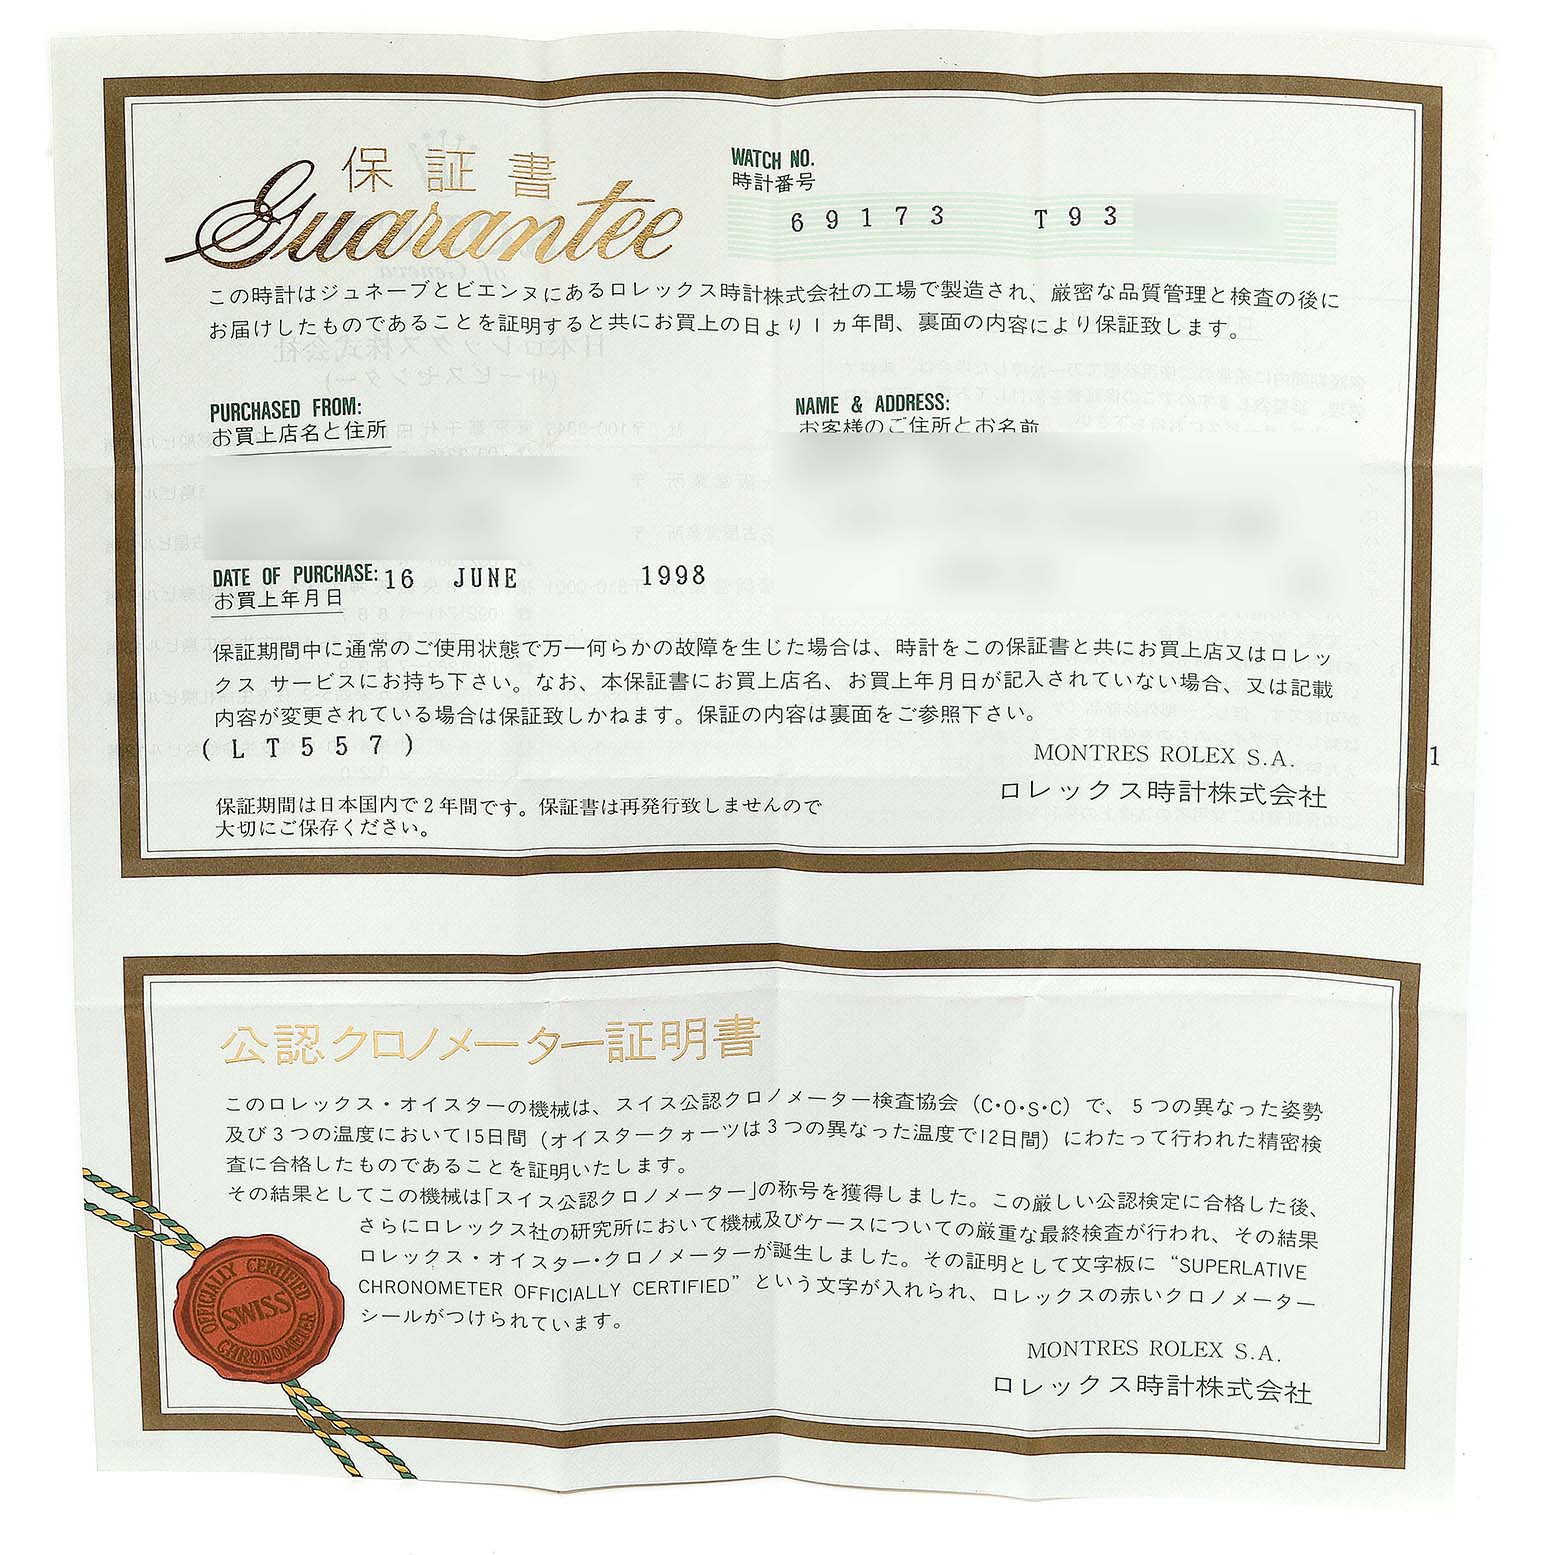 保証書
Guarantee
WATCH NO.
時計番号
69173 T93
この時計はジュネーブとビエンヌにあるロレックス時計株式会社の工場で製造され、厳密な品質管理と検査の後に
お届けしたものであることを証明すると共にお買上の日より1ヵ年間、裏面の内容により保証致します。
PURCHASED FROM:
お買上店名と住所
NAME & ADDRESS:
お客様のご住所とお名前
DATE OF PURCHASE: 16 JUNE 1998
お買上年月日
保証期間中に通常のご使用状態で万一何らかの故障を生じた場合は、時計をこの保証書と共にお買上店又はロレッ
クス サービスにお持ち下さい。なお、本保証書にお買上店名、お買上年月日が記入されていない場合、又は記載
内容が変更されている場合は保証致しかねます。保証の内容は裏面をご参照下さい。
(LT557)
MONTRES ROLEX S.A.
1
ロレックス時計株式会社
保証期間は日本国内で2年間です。保証書は再発行致しませんので
大切にご保存ください。
公認クロノメーター証明書
このロレックス・オイスターの機械は、スイス公認クロノメーター検査協会(C・O・S・C)で、5つの異なった姿勢
及び3つの温度において15日間(オイスタークォーツは3つの異なった温度で12日間)にわたって行われた精密検
査に合格したものであることを証明いたします。
その結果としてこの機械は「スイス公認クロノメーター」の称号を獲得しました。この厳しい公認検定に合格した後、
さらにロレックス社の研究所において機械及びケースについての厳重な最終検査が行われ、その結果
ロレックス・オイスター・クロノメーターが誕生しました。その証明として文字板に“SUPERLATIVE
CHRONOMETER OFFICIALLY CERTIFIED”という文字が入れられ、ロレックスの赤いクロノメーター
シールがつけられています。
OFFICIALLY CERTIFIED
SWISS
CHRONOMETER
MONTRES ROLEX S.A.
ロレックス時計株式会社